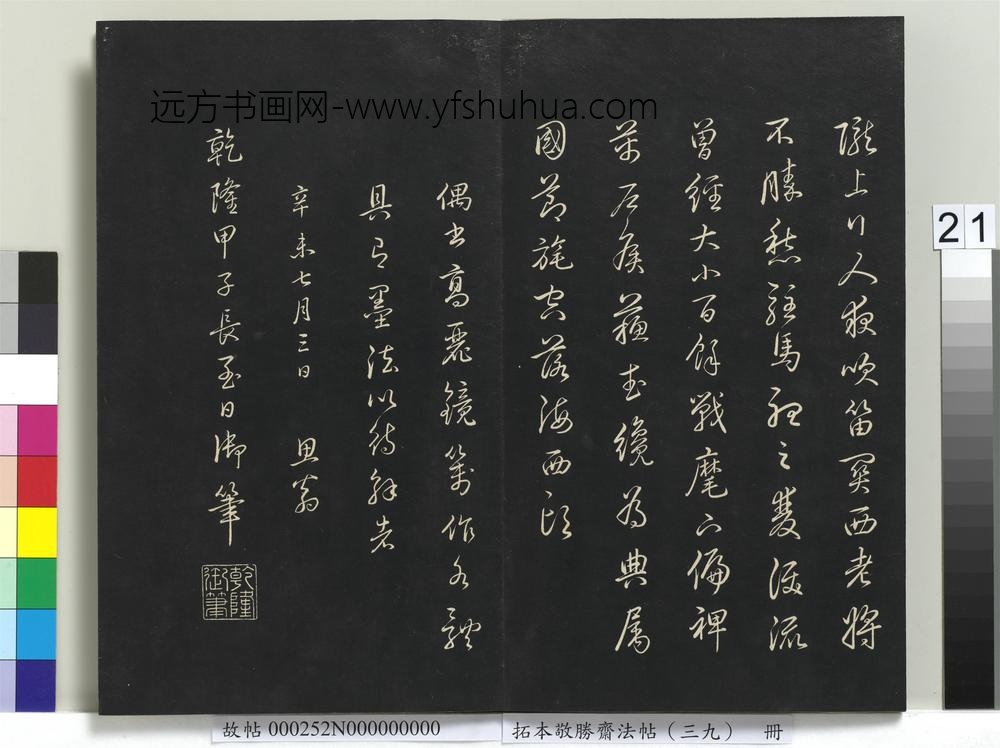 远方书画网-www.yfshuhua.com
隴上行人夜吹笛關西老將
不勝愁駐馬聽之雙淚流
曾經大小百餘戰麾下偏裨
萬戶侯蘇武纔為典屬
國節旄空落海西頭
偶書高麗鏡箋作各體
具有墨法以待解者
辛未七月三日 思翁
乾隆甲子長至日御筆
乾隆御筆
21
故帖 000252N000000000
拓本敬勝齋法帖（三九） 冊